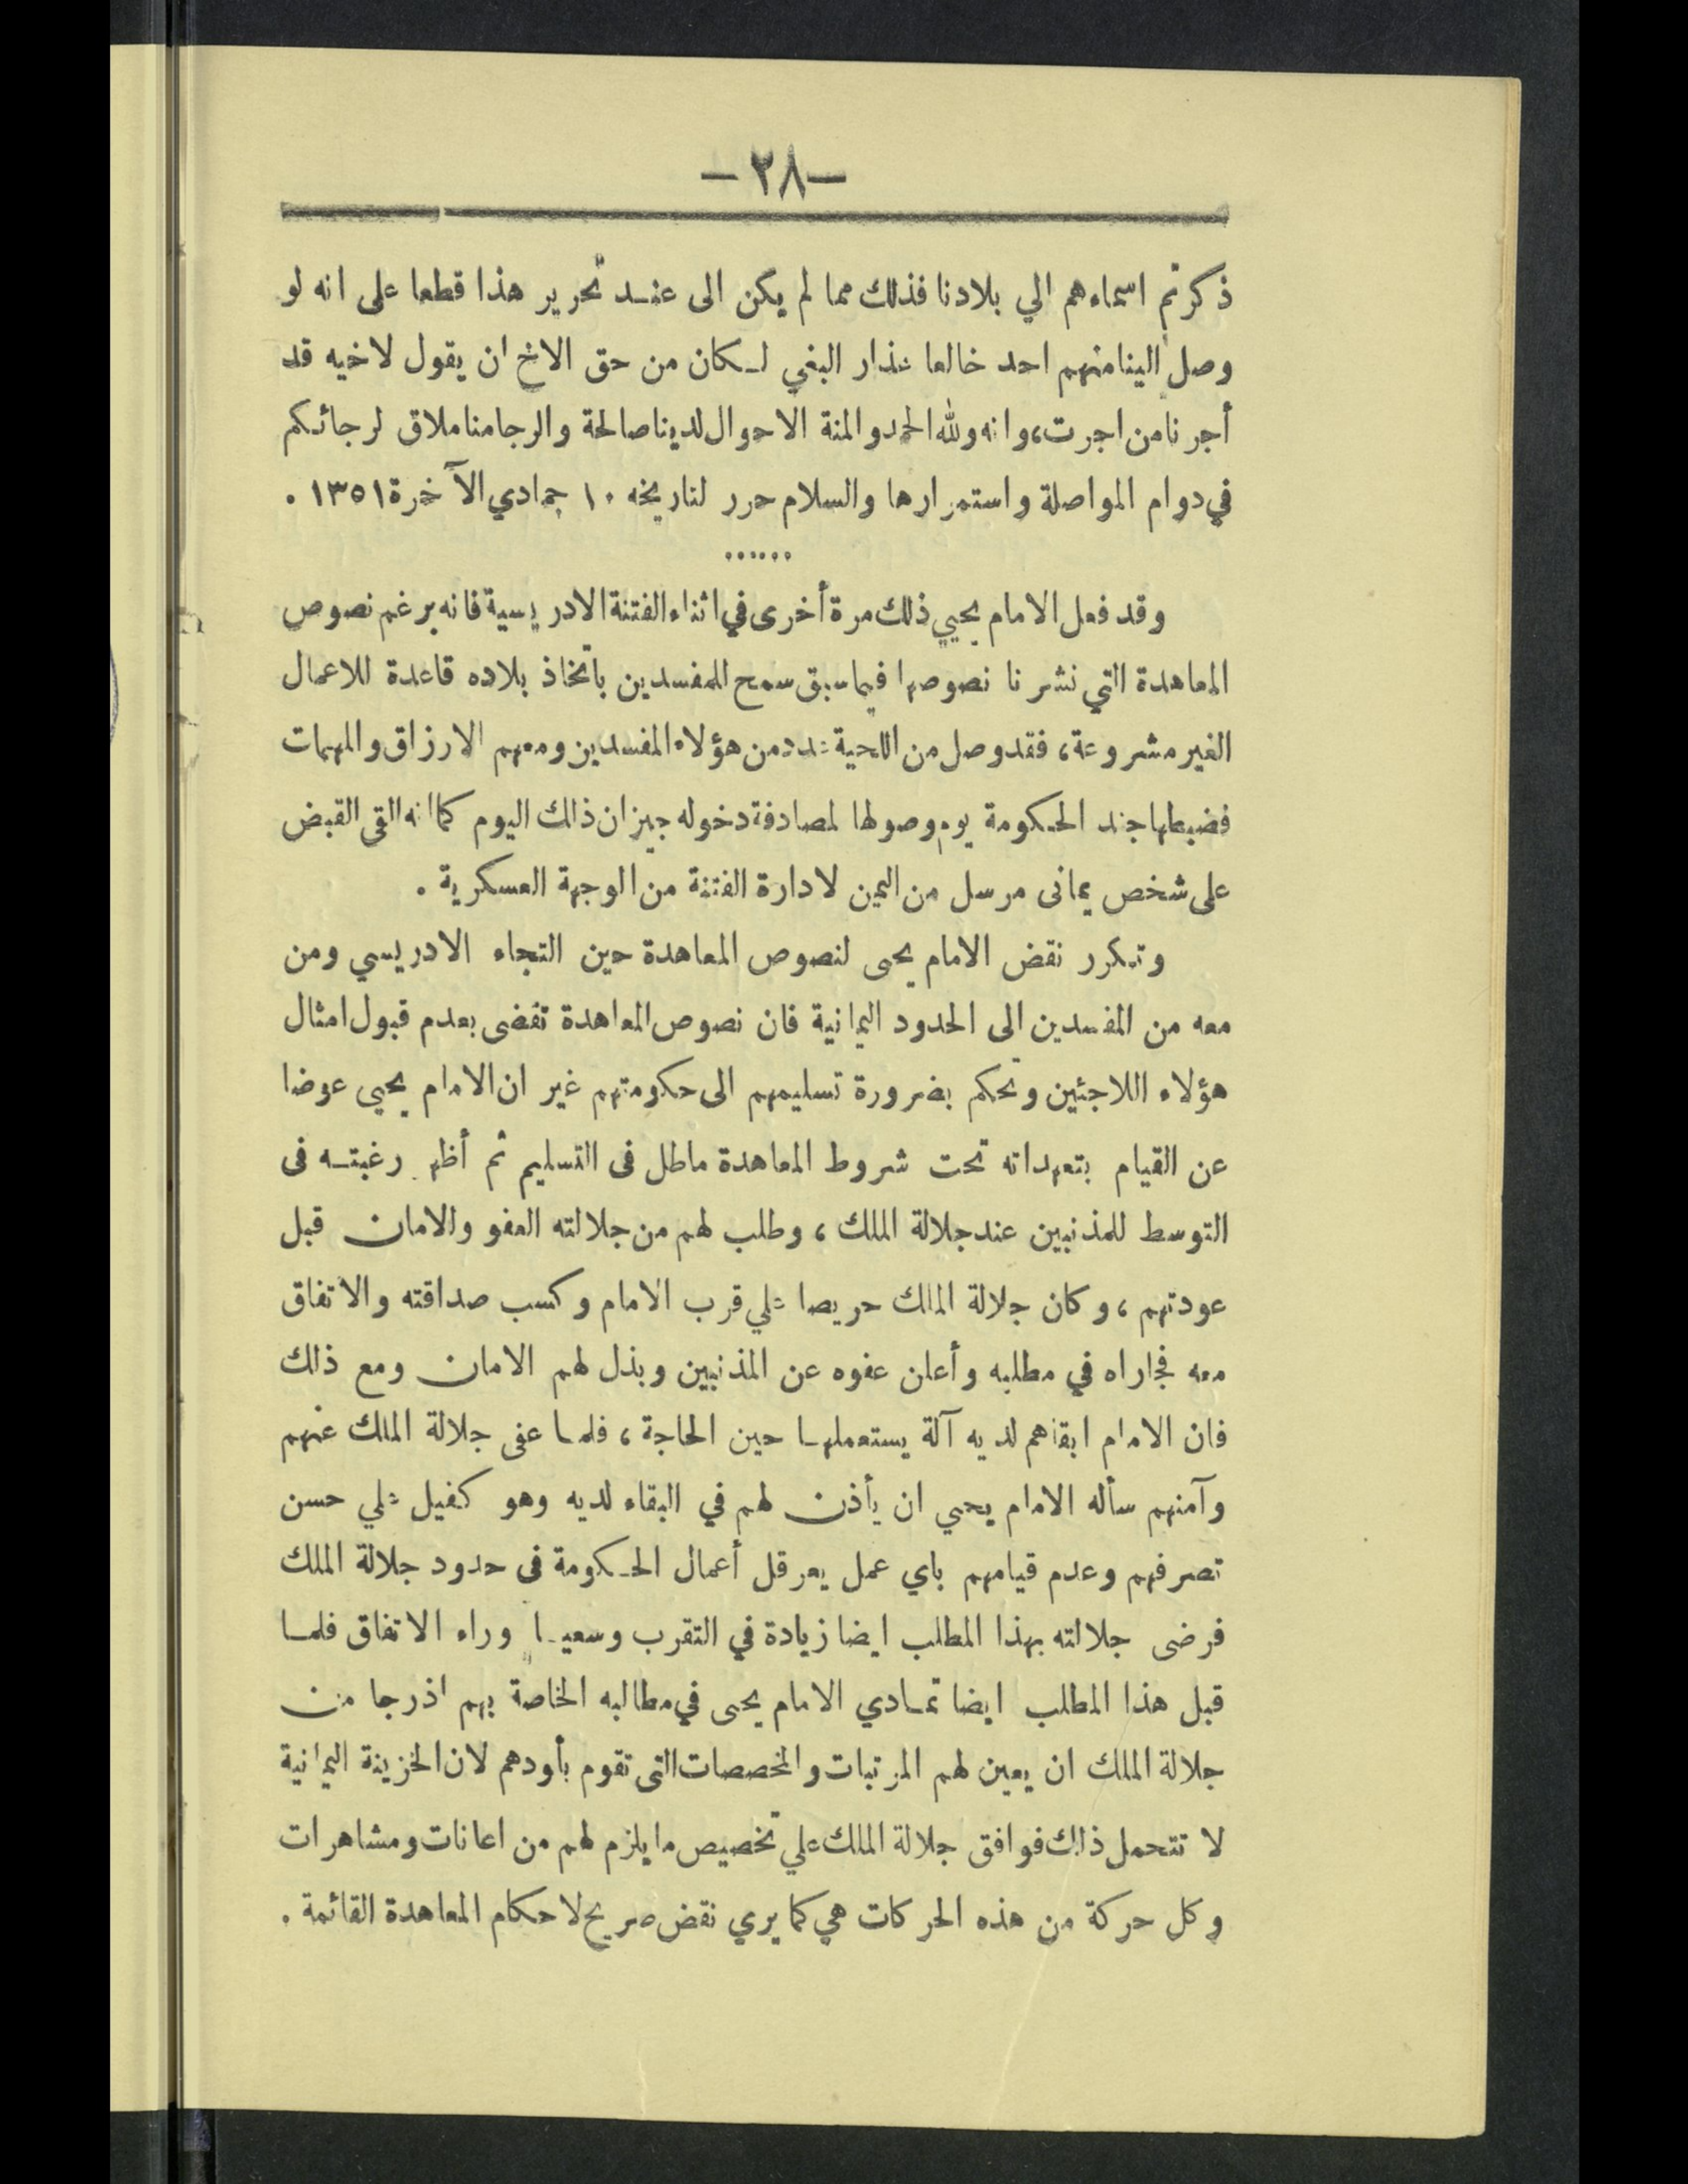 — ٢٨ —
ذكرتم اسماءهم الي بلادنا فذلك مما لم يكن الى عنـد تحرير هذا قطعا على انه لو
وصل الينا منهم احد خالعا عذار البغي لـكان من حق الاخ ان يقول لاخيه قد
أجرنا من اجرت، وانه ولله الحمد والمنة الاحوال لدينا صالحة والرجا منا ملاق لرجائكم
في دوام المواصلة واستمرارها والسلام حرر لتاريخه ١٠ جمادي الآخرة ١٣٥١ .
......
وقد فعل الامام يحيي ذلك مرة أخرى في اثناء الفتنة الادريسية فانه برغم نصوص
المعاهدة التي نشرنا نصوصها فيما سبق سمح للمفسدين باتخاذ بلاده قاعدة للاعمال
الغير مشروعة، فقد وصل من اللحية عدد من هؤلاء المفسدين ومعهم الارزاق والمهمات
فضبطها جند الحكومة يوم وصولها لمصادفة دخوله جيزان ذلك اليوم كما انه القى القبض
على شخص يمانى مرسل من اليمن لادارة الفتنة من الوجهة العسكرية .
وتكرر نقض الامام يحيى لنصوص المعاهدة حين التجاء الادريسي ومن
معه من المفسدين الى الحدود اليمانية فان نصوص المعاهدة تقضى بعدم قبول امثال
هؤلاء اللاجئين وتحكم بضرورة تسليمهم الى حكومتهم غير ان الامام يحيى عوضا
عن القيام بتعهداته تحت شروط المعاهدة ماطل فى التسليم ثم أظهر رغبتـه فى
التوسط للمذنبين عند جلالة الملك، وطلب لهم من جلالته العفو والامان قبل
عودتهم، وكان جلالة الملك حريصا علي قرب الامام وكسب صداقته والاتفاق
معه فجاراه في مطلبه وأعلن عفوه عن المذنبين وبذل لهم الامان ومع ذلك
فان الامام ابقاهم لديه آلة يستعملهـا حين الحاجة، فلمـا عفى جلالة الملك عنهم
وآمنهم سأله الامام يحيي ان يأذن لهم في البقاء لديه وهو كفيل علي حسن
تصرفهم وعدم قيامهم باي عمل يعرقل أعمال الحـكومة فى حدود جلالة الملك
فرضى جلالته بهذا المطلب ايضا زيادة في التقرب وسعيـا وراء الاتفاق فلمـا
قبل هذا المطلب ايضا تمـادي الامام يحيى في مطالبه الخاصة بهم اذ رجا من
جلالة الملك ان يعين لهم المرتبات والمخصصات التى تقوم بأودهم لان الخزينة اليمانية
لا تتحمل ذلك فوافق جلالة الملك علي تخصيص ما يلزم لهم من اعانات ومشاهرات
وكل حركة من هذه الحركات هي كما يري نقض صريح لاحكام المعاهدة القائمة .